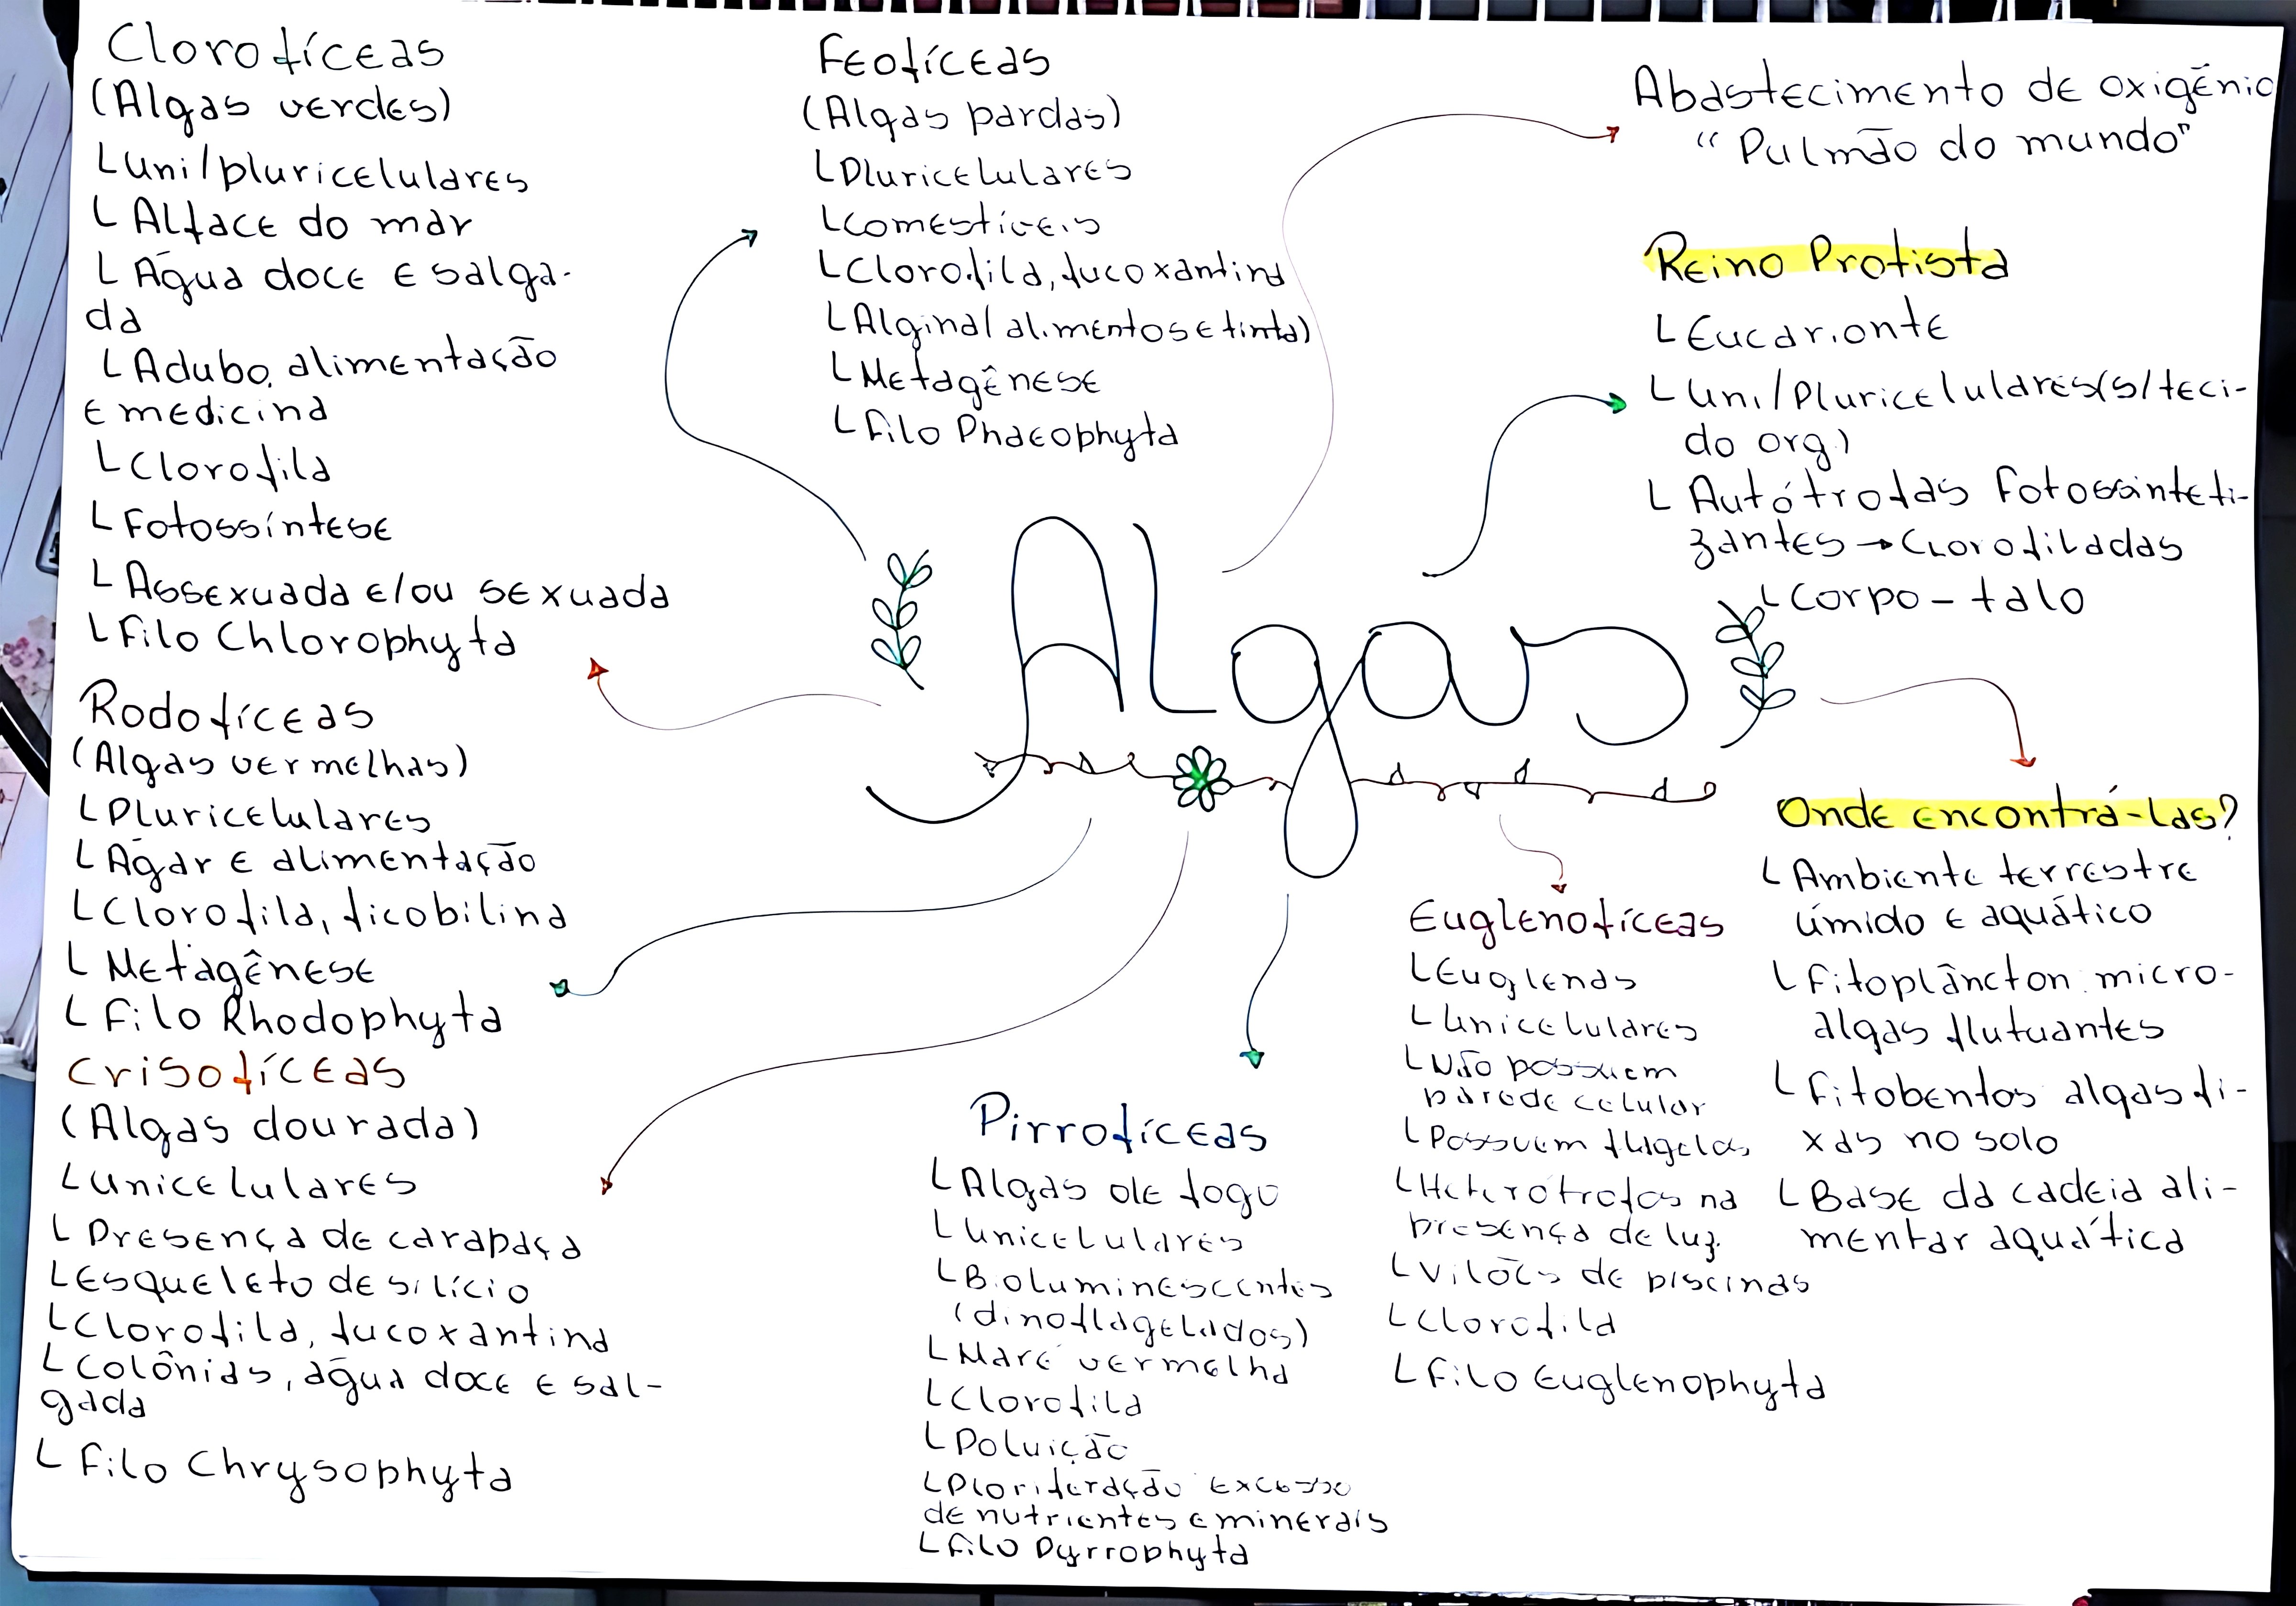 Clorofíceas
(Algas verdes)
Uni/pluricelulares
Alface do mar
Água doce e salga-
da
Adubo, alimentação
e medicina
Clorofila
Fotossíntese
Assexuada e/ou sexuada
Filo Chlorophyta
Rodofíceas
(Algas vermelhas)
Pluricelulares
Ágar e alimentação
Clorofila, ficobilina
Metagênese
Filo Rhodophyta
Crisofíceas
(Algas dourada)
Unicelulares
Presença de carapaça
Esqueleto de silício
Clorofila, fucoxantina
Colônias, água doce e sal-
gada
Filo Chrysophyta
Feofíceas
(Algas pardas)
Pluricelulares
Comestíveis
Clorofila, fucoxantina
Algina (alimentos e tinta)
Metagênese
Filo Phaeophyta
Algas
Pirrofíceas
Algas de fogo
Unicelulares
Bioluminescentes
(dinoflagelados)
Maré vermelha
Clorofila
Poluição
Ploriferação excesso
de nutrientes e minerais
Filo Pyrrophyta
Euglenofíceas
Euglenas
Unicelulares
Não possuem
parede celular
Possuem flagelos
Heterótrofos na
presença de luz.
Vilões de piscinas
Clorofila
Filo Euglenophyta
Abastecimento de oxigênio
"Pulmão do mundo"
Reino Protista
Eucarionte
Uni/Pluricelulares (s/teci-
do org.)
Autótrofas fotossinteti-
zantes → Clorofiladas
Corpo - talo
Onde encontrá-las?
Ambiente terrestre
úmido e aquático
Fitoplâncton: micro-
algas flutuantes
Fitobentos algas fi-
xas no solo
Base da cadeia ali-
mentar aquática